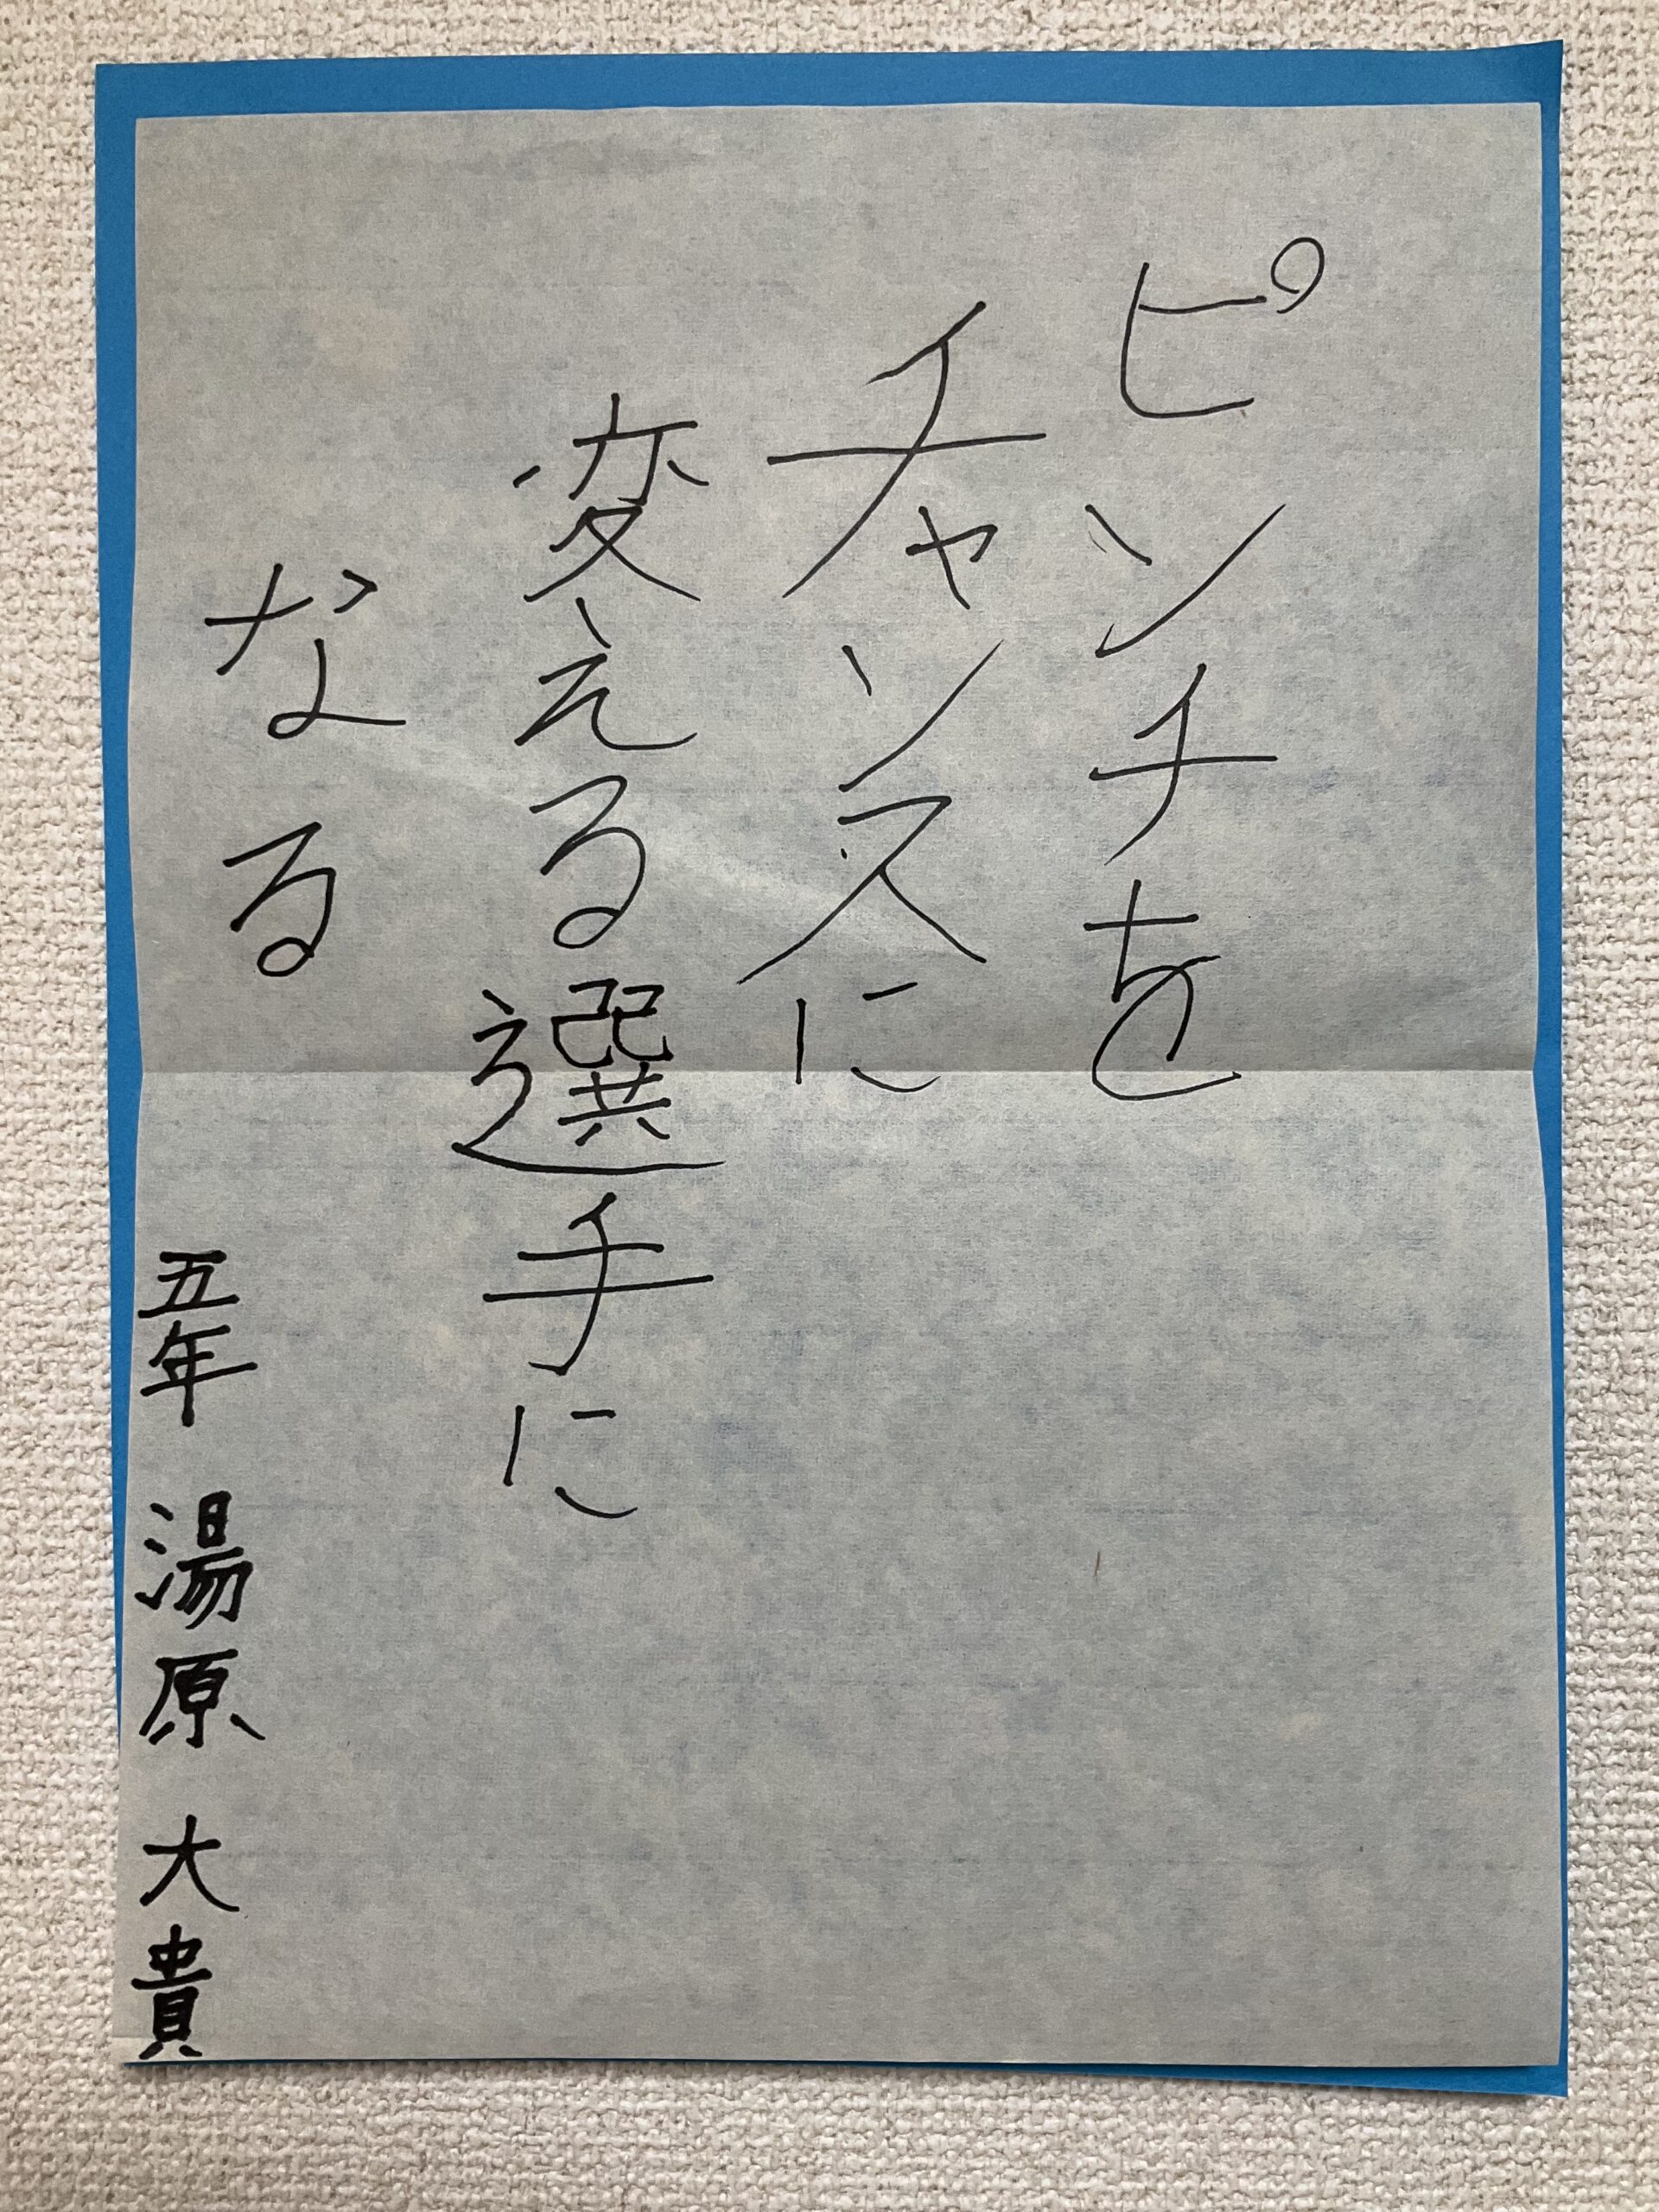 ピンチを
チャンスに
変える選手に
なる
五年 湯原 大貴